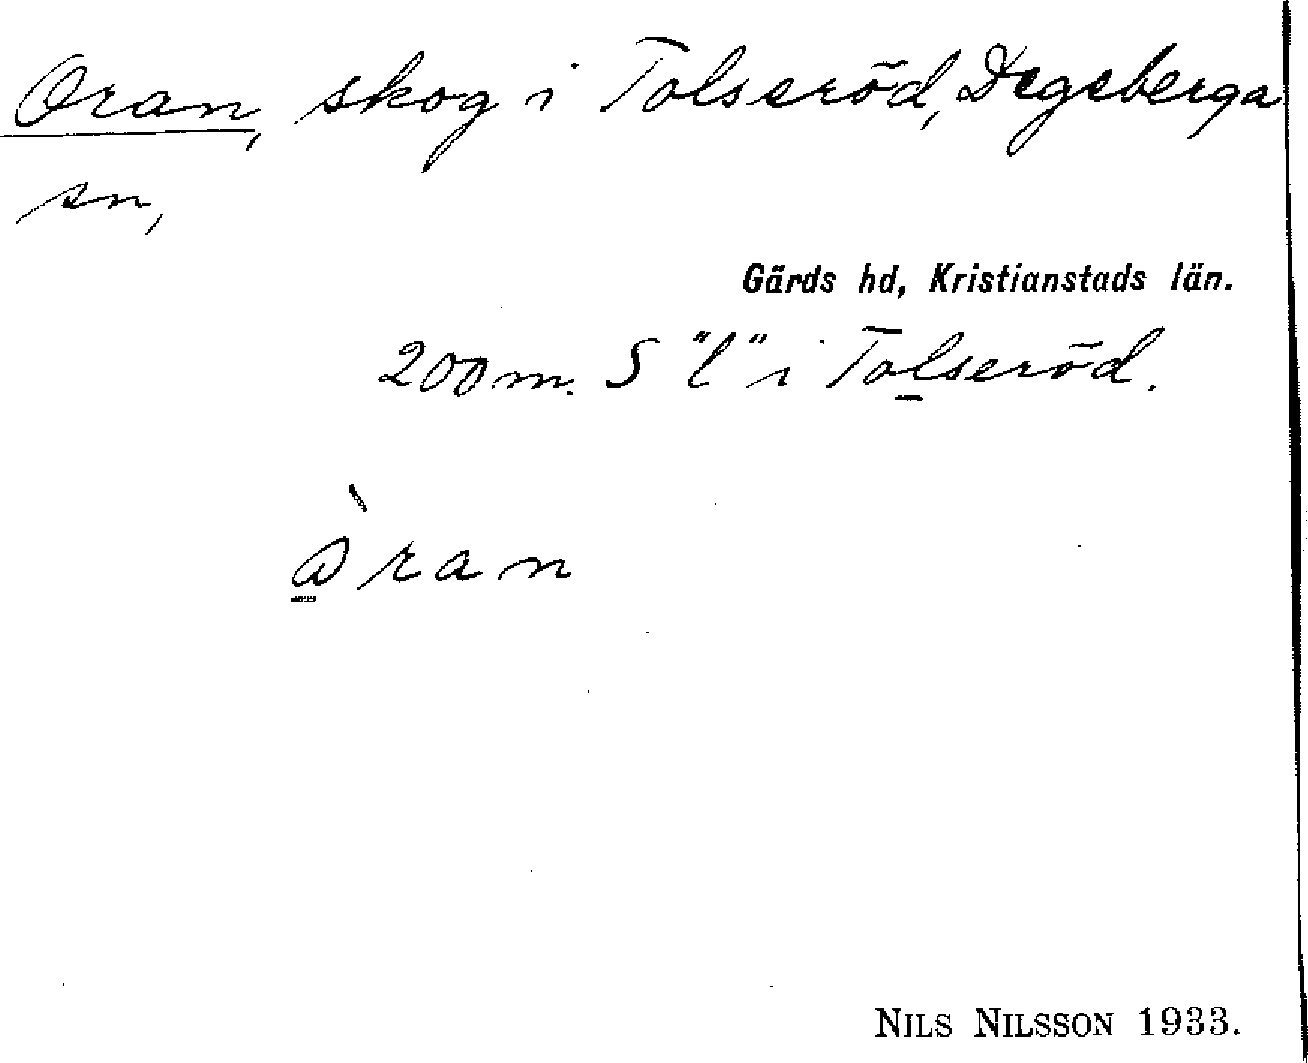 Oran, skog i Tolseröd, Degeberga
sn,
Gärds hd, Kristianstads län.
200 m. S "l" i Tolseröd.
òran
NILS NILSSON 1933.